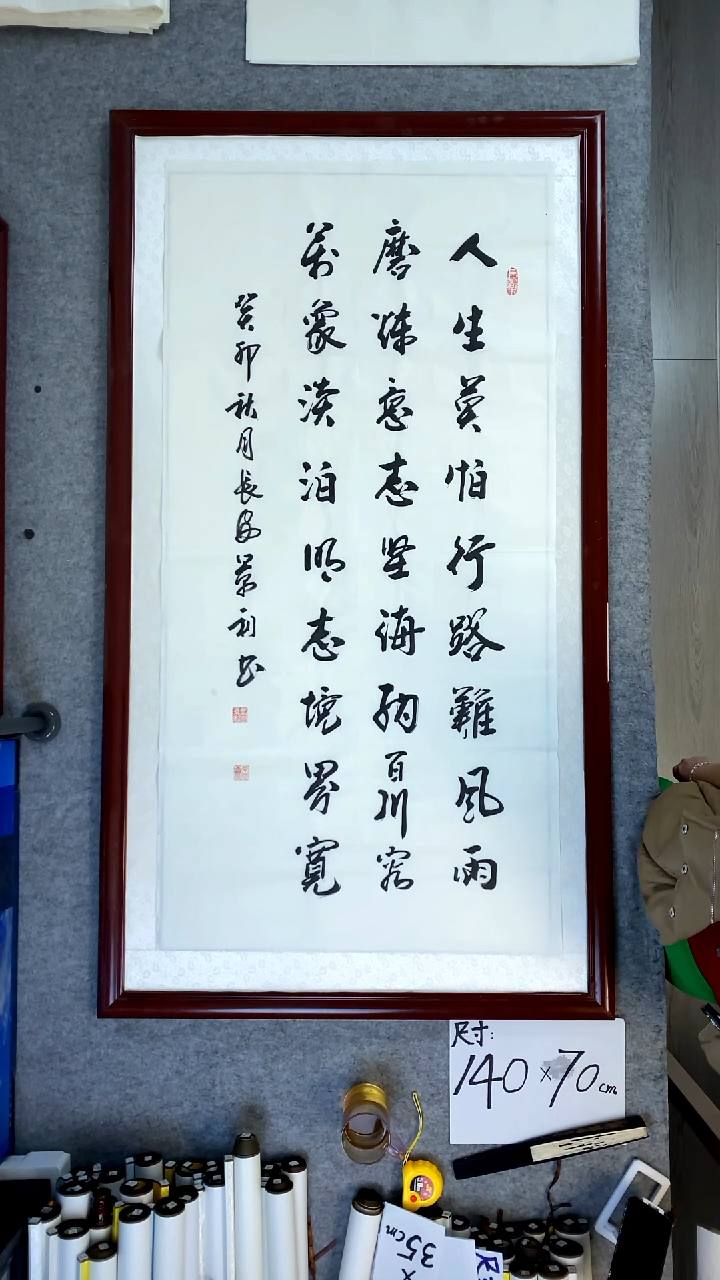 人生莫怕行路難風雨
磨煉意志坚海納百川容
萬象淡泊明志境界寬
癸卯秋月長安利书
尺寸:
140×70cm
×35cm
尺